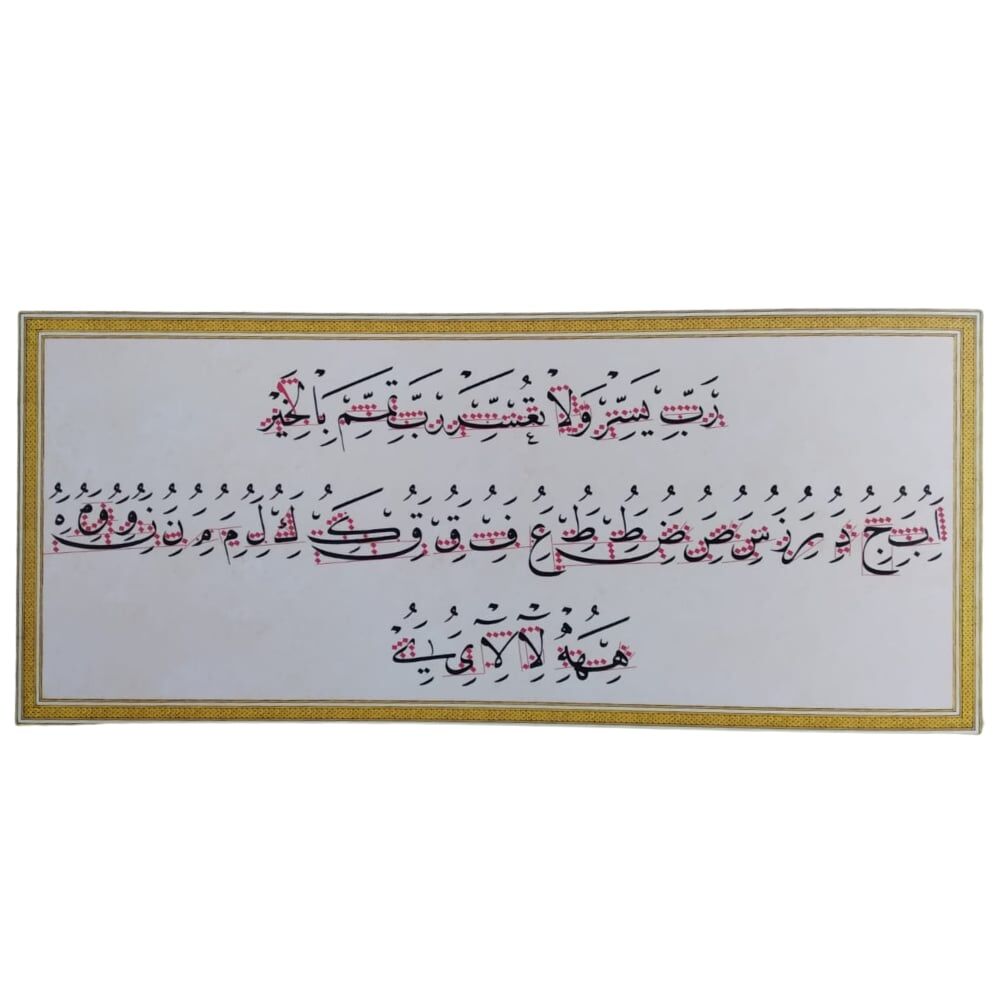 رَبِّ يَسِّرْ وَلَا تُعَسِّرْ رَبِّ تَمِّمْ بِالْخَيْرِ
ا ب ج د ر ز س ص ض ط ظ ع ف ق ق ك ك ل م م ن ن و و م ه
ه ه لا لا ي ي